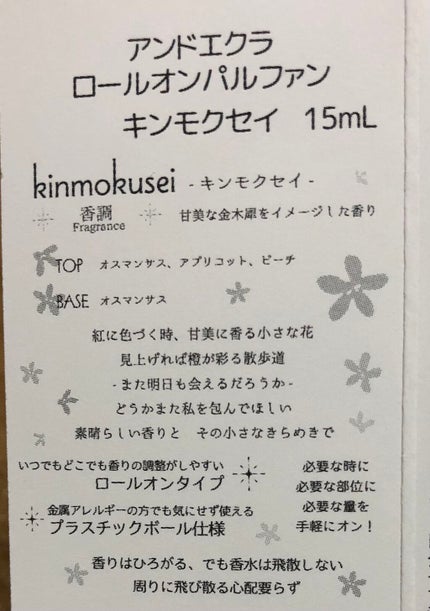 アンドエクラ
ロールオンパルファン
キンモクセイ 15mL
kinmokusei -キンモクセイ-
香調 甘美な金木犀をイメージした香り
Fragrance
TOP オスマンサス、アプリコット、ピーチ
BASE オスマンサス
紅に色づく時、甘美に香る小さな花
見上げれば橙が彩る散歩道
-また明日も会えるだろうか-
どうかまた私を包んでほしい
素晴らしい香りと その小さなきらめきで
いつでもどこでも香りの調整がしやすい
ロールオンタイプ
金属アレルギーの方でも気にせず使える
プラスチックボール仕様
必要な時に
必要な部位に
必要な量を
手軽にオン！
香りはひろがる、でも香水は飛散しない
周りに飛び散る心配要らず